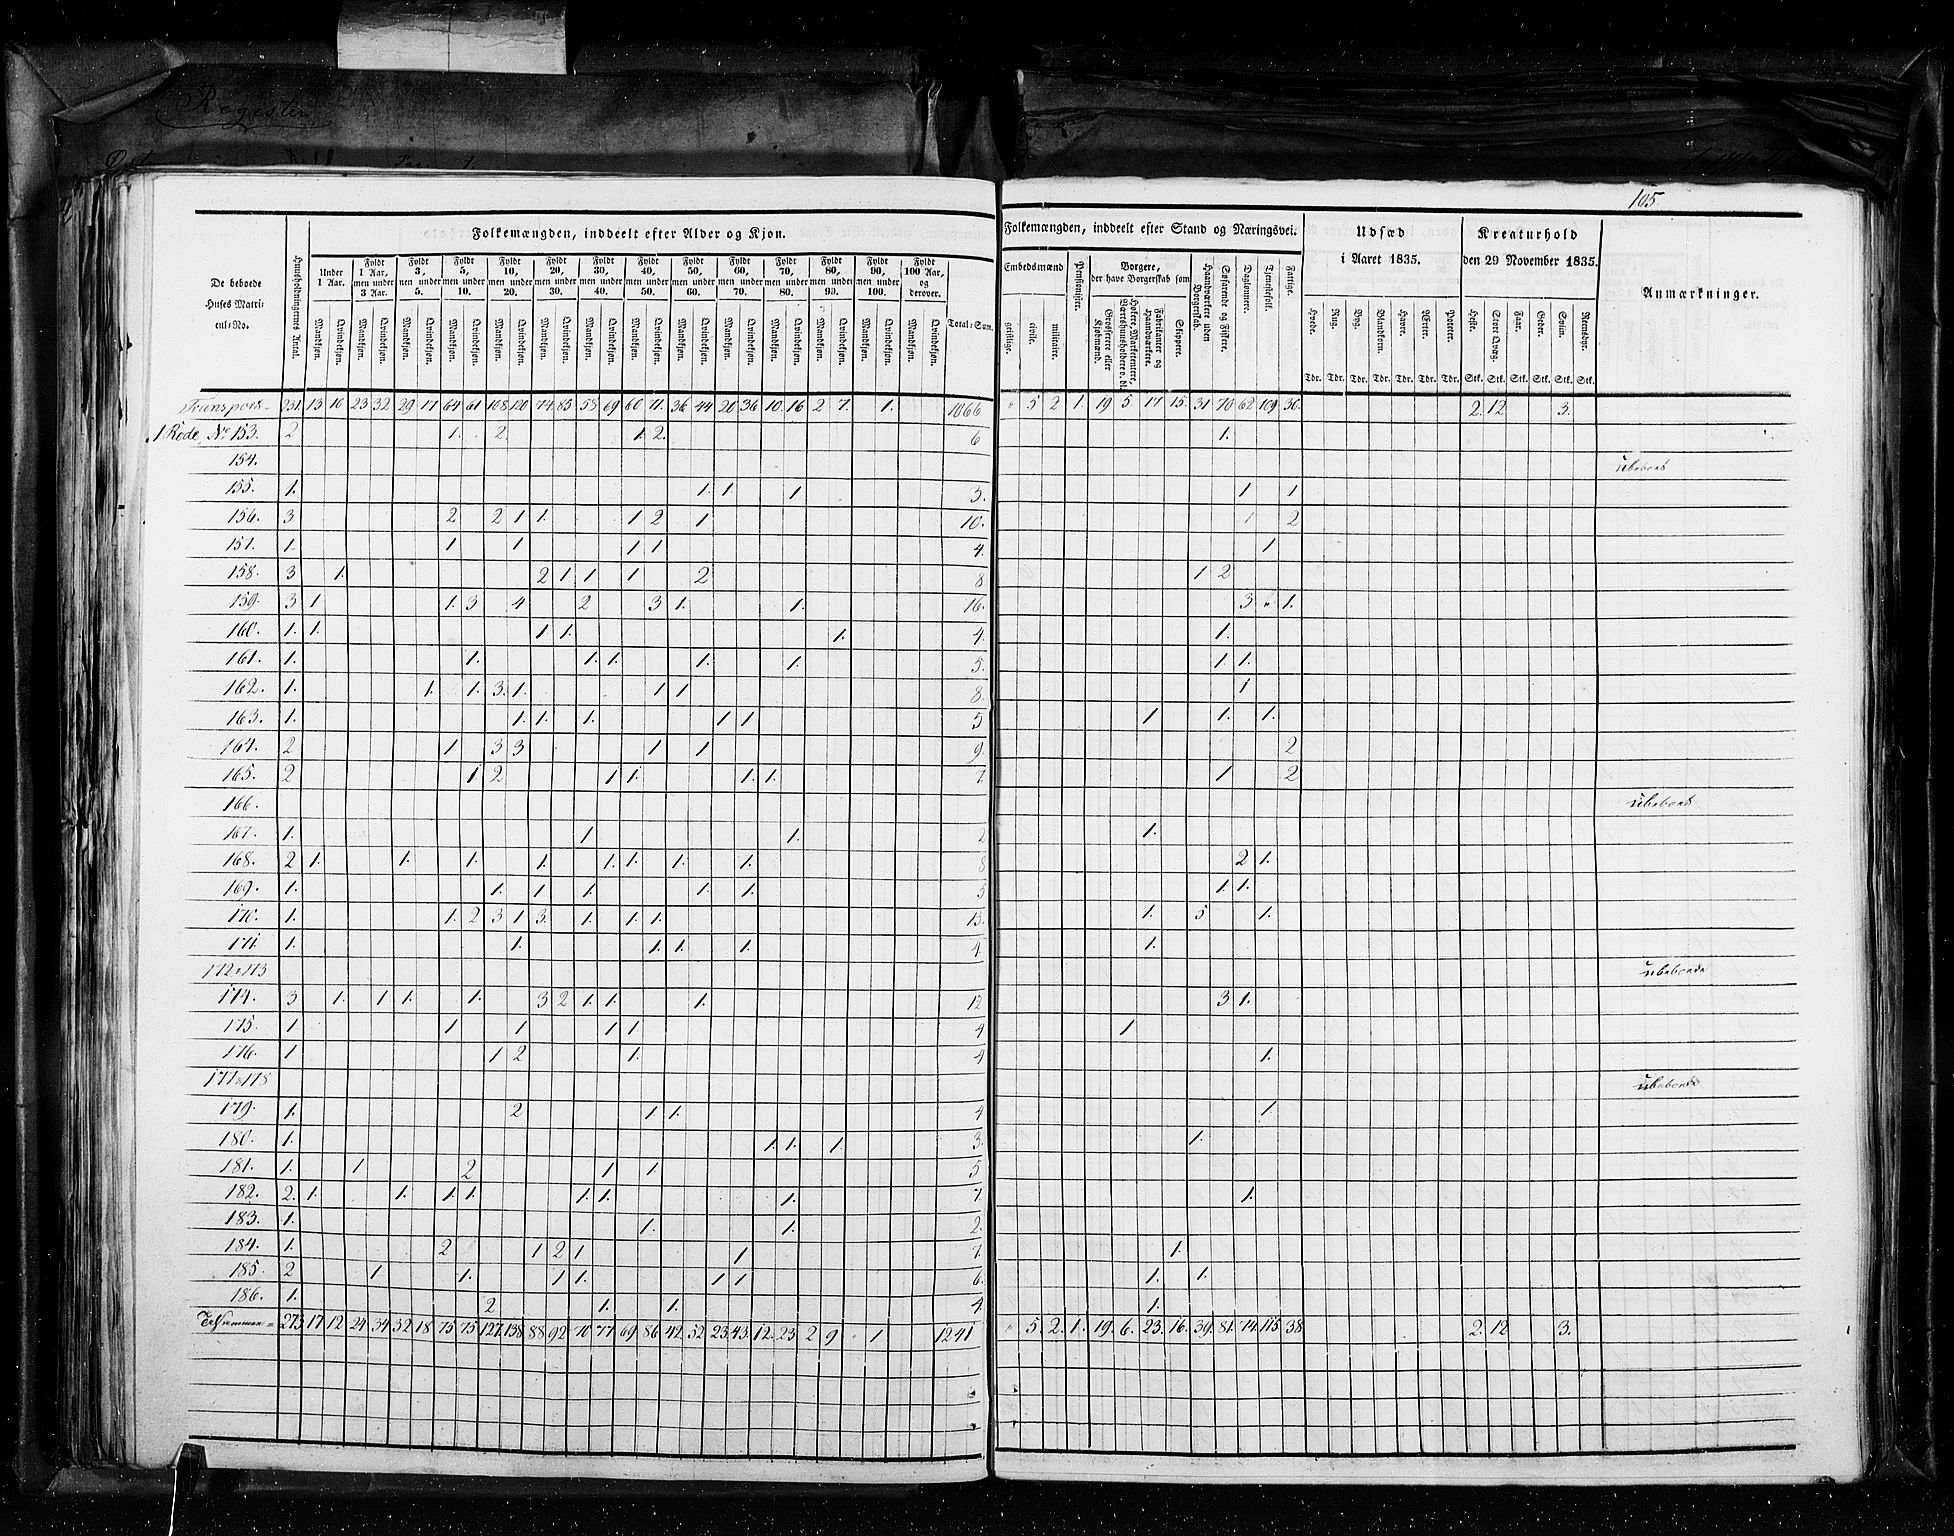 Register
105.
Folkemængden, inddeelt efter Alder og Kjøn.
De beboede Huses Matricul-No.
Huusholdningernes Antal.
Under 1 Aar. Fyldt 1 Aar, men under 3 Aar. Fyldt 3, men under 5. Fyldt 5, men under 10. Fyldt 10, men under 20. Fyldt 20, men under 30. Fyldt 30, men under 40. Fyldt 40, men under 50. Fyldt 50, men under 60. Fyldt 60, men under 70. Fyldt 70, men under 80. Fyldt 80, men under 90. Fyldt 90, men under 100. Fyldt 100 Aar, og derover.
Mandkjøn. Qvindekjøn. Mandkjøn. Qvindekjøn. Mandkjøn. Qvindekjøn. Mandkjøn. Qvindekjøn. Mandkjøn. Qvindekjøn. Mandkjøn. Qvindekjøn. Mandkjøn. Qvindekjøn. Mandkjøn. Qvindekjøn. Mandkjøn. Qvindekjøn. Mandkjøn. Qvindekjøn. Mandkjøn. Qvindekjøn. Mandkjøn. Qvindekjøn. Mandkjøn. Qvindekjøn. Mandkjøn. Qvindekjøn. Total-Sum.
Transport 231. 13 10 23 32 29 17 64 61 108 120 74 83 58 69 60 71. 36 44 20 36 10. 16 2 7. 1. 1066
1 Rode, No 153. 2 1. 2. 1. 2. 6
154.
155. 1. 1 1 1 3.
156. 3 2 2 1 1. 1 2 1 10.
157. 1 1 1 1 1 4.
158. 3 1. 2 1 1 1 2 8.
159. 3 1 1. 3 4 2 3 1. 1. 16.
160. 1. 1. 1 1. 1. 4.
161. 1. 1. 1. 1. 1. 1. 5.
162. 1. 1. 1. 3. 1. 1 1 8.
163. 1. 1. 1. 1. 1 1. 5
164. 2 1 3 3 1 1 9.
165. 2 1 2 1 1. 1. 1. 7.
166.
167. 1. 1 1. 2
168. 2 1. 1. 1. 1. 1. 1. 1. 1. 8
169. 1. 1. 1 1. 1. 1. 5
170. 1. 1. 2 3 1 3. 1. 1 1. 13.
171. 1. 1. 1. 1. 1. 4
172 173
174. 3 1. 1 1. 1. 3 2 1. 1. 1. 12
175. 1 1 1 1 1. 4
176. 1 1 2 1. 4
177 178
179. 1. 2 1 1. 4
180. 1. 1. 1. 1. 3.
181. 1. 1 2 1 1. 5
182. 2. 1. 1. 1. 1. 1. 1. 1. 7
183. 1. 1. 1. 2.
184. 1. 2 1 2 1 1 7.
185. 2 1 1. 1 1. 1 1. 6.
186. 1. 2 1. 1. 4.
Tilsammen 273. 17 12 24 34 32 18 75 75 127. 138 88 92 70 77 69 86 42. 52 23 43. 12. 23 2 9 1 1241
Folkemængden, inddeelt efter Stand og Næringsvei.
Embedsmænd
geistlige. civile. militaire.
Pensionister.
Borgere, der have Borgerskab som
Grosserere eller Kjøbmænd.
Høkere, Marketentere, Værtshuusholdere o. dl.
Fabrikanter og Haandværkere.
Skippere.
Haandværkere uden Borgerskab.
Søfarende og Fiskere.
Daglønnere.
Tjenestefolk.
Fattige.
Udsæd i Aaret 1835.
Hvede. Rug. Byg. Blandkorn. Havre. Ærter. Poteter.
Tdr. Tdr. Tdr. Tdr. Tdr. Tdr. Tdr.
Kreaturhold den 29 November 1835.
Heste. Stort Qvæg. Faar. Geder. Sviin. Reensdyr.
Stk. Stk. Stk. Stk. Stk. Stk.
Anmærkninger.
" 5 2 1. 19 5 17 15. 31 70 62 109 36. 2. 12 3.
1.
ubeboet
1 1
1 2
1
1 2
3 " 1.
1.
1 1.
1
1 1. 1.
2
1 2
ubeboet
1.
2 1.
1. 1.
1. 5 1.
1.
ubeboede
3 1.
1
1.
ubeboede
1
1.
1.
1.
1. 1.
1.
" 5. 2. 1. 19. 6. 23. 16. 39. 81. 74. 115 38 2. 12 3.